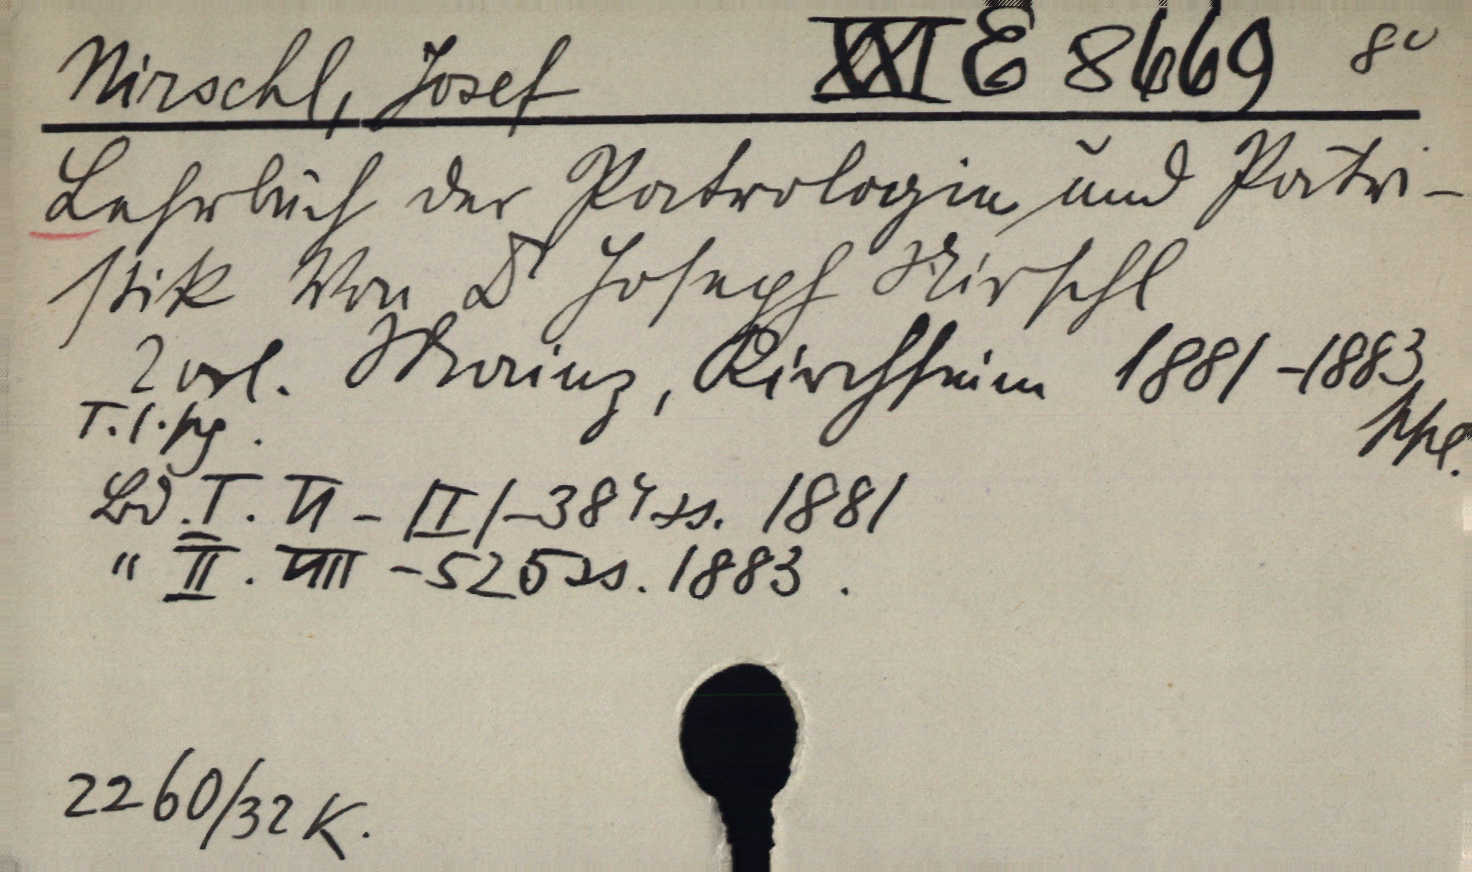 Nirschl, Josef XXI E 8669 8º
Lehrbuch der Patrologie und Patri-
stik Von Dr Joseph Nirschl
2 vol. Mainz, Kirchheim 1881-1883
T. 1. pg.
Bd. I. VI - II/-384 ss. 1881
" II. VIII - 525 ss. 1883.
2260/32 K.